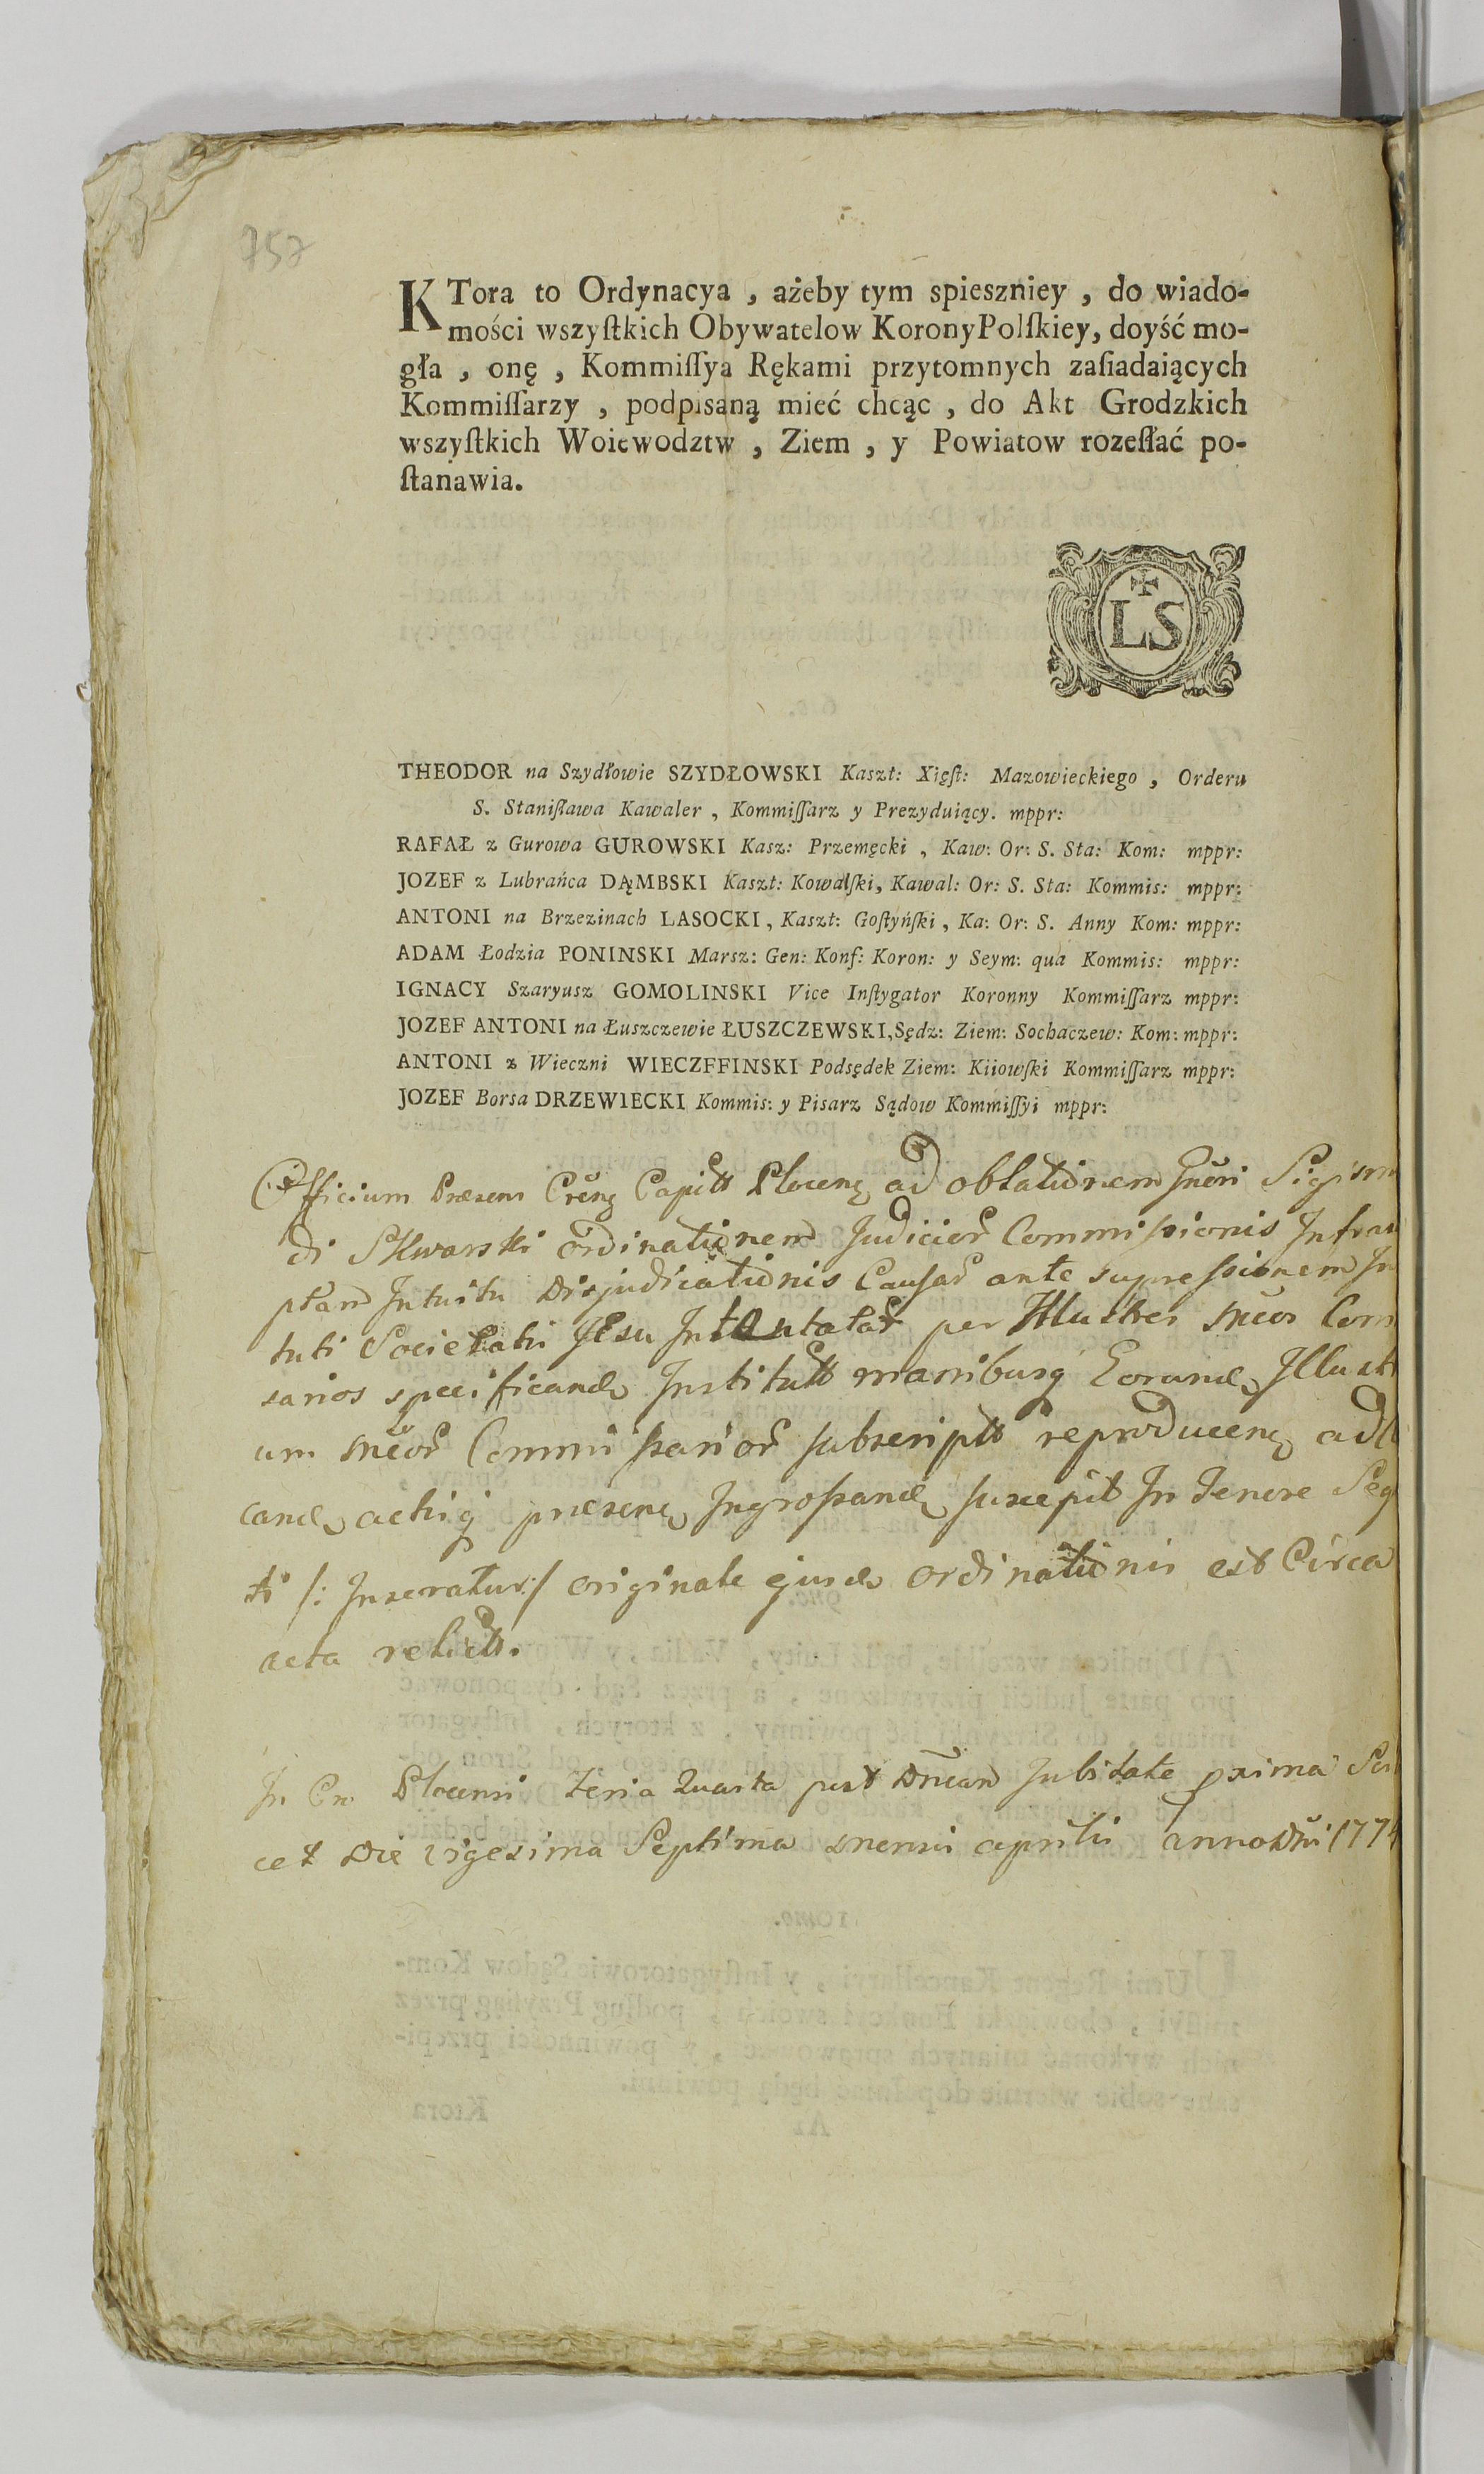 757
KTora to Ordynacya , ażeby tym spieszniey , do wiado-
mości wszyſtkich Obywatelow Korony Polſkiey, doyść mo-
gła , onę , Kommiſſya Rękami przytomnych zaſiadaiących
Kommiſſarzy , podpisaną mieć chcąc , do Akt Grodzkich
wszyſtkich Woiewodztw , Ziem , y Powiatow rozeſłać po-
ſtanawia.
LS
THEODOR na Szydłowie SZYDŁOWSKI Kaszt: Xięſt: Mazowieckiego , Orderu
S. Staniſława Kawaler , Kommiſſarz y Prezyduiący. mppr:
RAFAŁ z Gurowa GUROWSKI Kasz: Przemęcki , Kaw: Or: S. Sta: Kom: mppr:
JOZEF z Lubrańca DĄMBSKI Kaszt: Kowalſki, Kawal: Or: S. Sta: Kommis: mppr:
ANTONI na Brzezinach LASOCKI, Kaszt: Goſtyńſki, Ka: Or: S. Anny Kom: mppr:
ADAM Łodzia PONINSKI Marsz: Gen: Konf: Koron: y Seym: qua Kommis: mppr:
IGNACY Szaryusz GOMOLINSKI Vice Inſtygator Koronny Kommiſſarz mppr:
JOZEF ANTONI na Łuszczewie ŁUSZCZEWSKI, Sędz: Ziem: Sochaczew: Kom: mppr:
ANTONI z Wieczni WIECZFFINSKI Podsędek Ziem: Kiiowſki Kommiſſarz mppr:
JOZEF Borsa DRZEWIECKI Kommis: y Pisarz Sądow Kommiſſyi mppr:
Officium Præsens ad oblationem
di Skwarski ordinationem Commissionis
Intuitu Disjudicationis ante supressionem
Societatis Jesu per Illustres
sarios
um reproducen
Ingrossand suscepit In Tenore
ti /: Inseratur :/ originale ordinationis est Circa
acta relict.
Feria Quarta post Jubilate
cet Die vigesima Septima mensis aprilis anno Dni 177